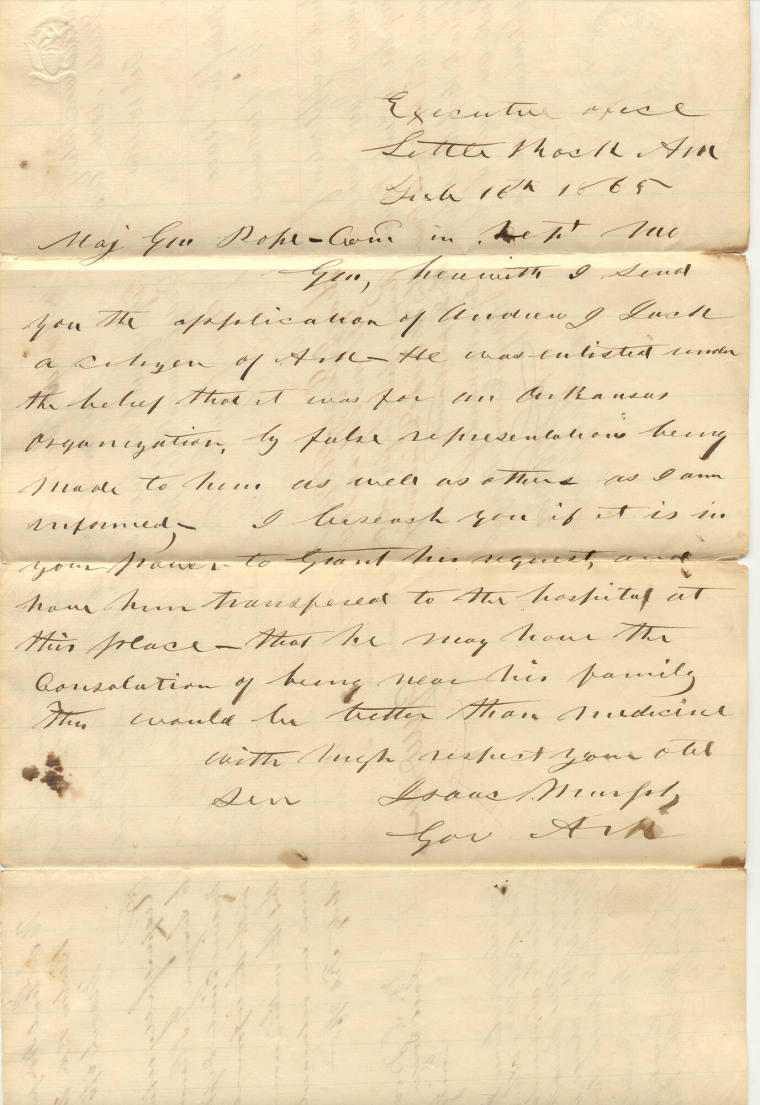 Executive office
Little Rock Ark
Feb 16th 1865
Maj Gen Pope - Com in Dept Mo
Gen, herewith I send
you the application of Andrew J
a citizen of Ark - He was enlisted under
the belief that it was for an Arkansas
organization, by false representations being
made to him as well as others as I am
informed, - I beseach you if it is in
your power to Grant his request, and
have him transfered to the hospital at
this place - that he may have the
Consolation of being near his family
This would be better than medicine
with high respect your obt
Ser Isaac Murphy
Gov Ark